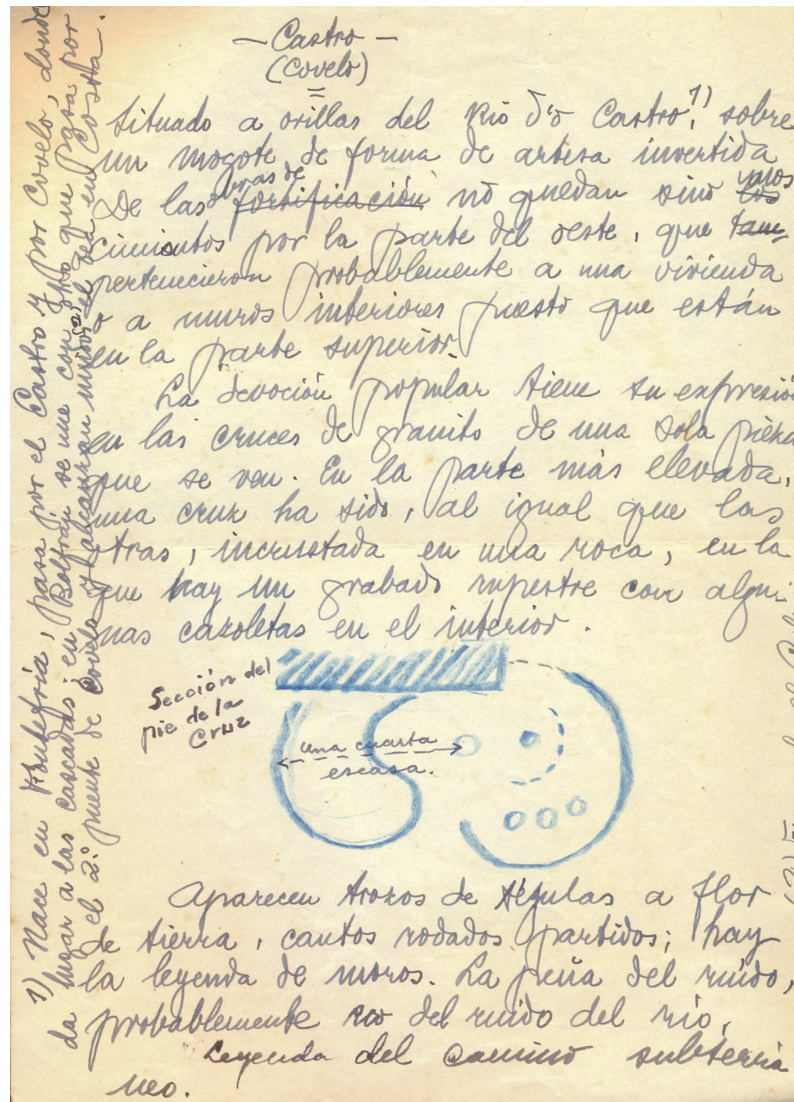 — Castro —
(Covelo)
Situado a orillas del Rio d'o Castro,1) sobre
un mogote de forma de artesa invertida
De las obras de fortificación no quedan sino los unos
cimientos por la parte del oeste, que tam
pertenecieron probablemente a una vivienda
o a muros interiores puesto que están
en la parte superior.
La devoción popular tiene su expresión
en las cruces de granito de una sola pieza
que se ven. En la parte más elevada,
una cruz ha sido, al igual que las
otras, incrustada en una roca, en la
que hay un grabado rupestre con algu-
nas cazoletas en el interior.
Sección del
pie de la
Cruz
una cuarta
escasa.
Aparecen trozos de tégulas a flor
de tierra, cantos rodados partidos; hay
la leyenda de moros. La peña del ruido,
probablemente del ruido del río,
Leyenda del camino subterrá
neo.
1) Nace en Fontefría, pasa por el Castro y por Covelo, donde
da lugar a las cascadas; en Beltrán se une con otro que pasa por
el 2.º puente de Covelo y alcanzan unidos el Tea en Costa.